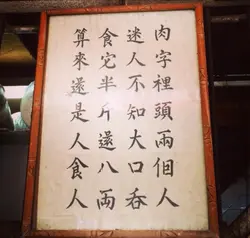 肉字裡頭兩個人
迷人不知大口吞
食完半斤還八両
算來還是人食人